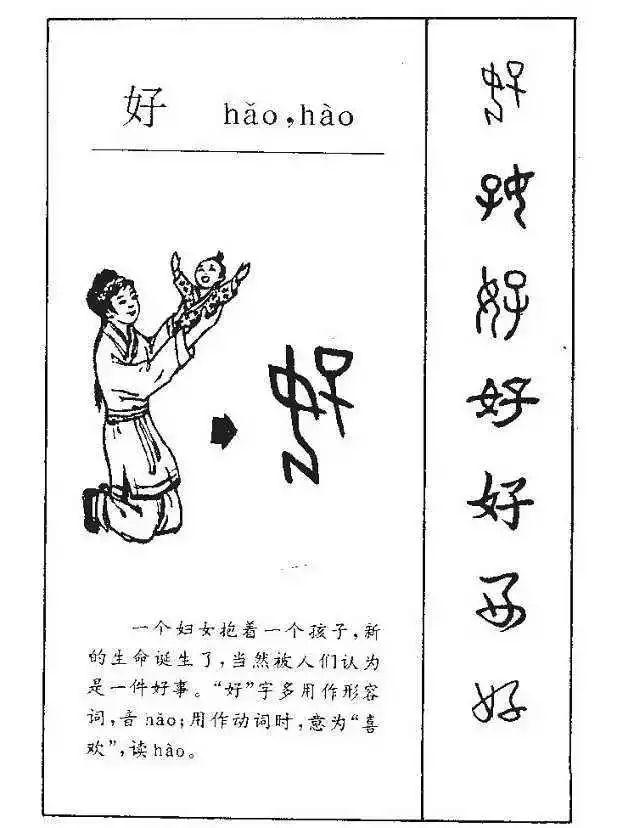 好 hǎo,hào
一个妇女抱着一个孩子,新
的生命诞生了,当然被人们认为
是一件好事。“好”字多用作形容
词,音hǎo;用作动词时,意为“喜
欢”,读hào。
好
好
好
好
好
好
好